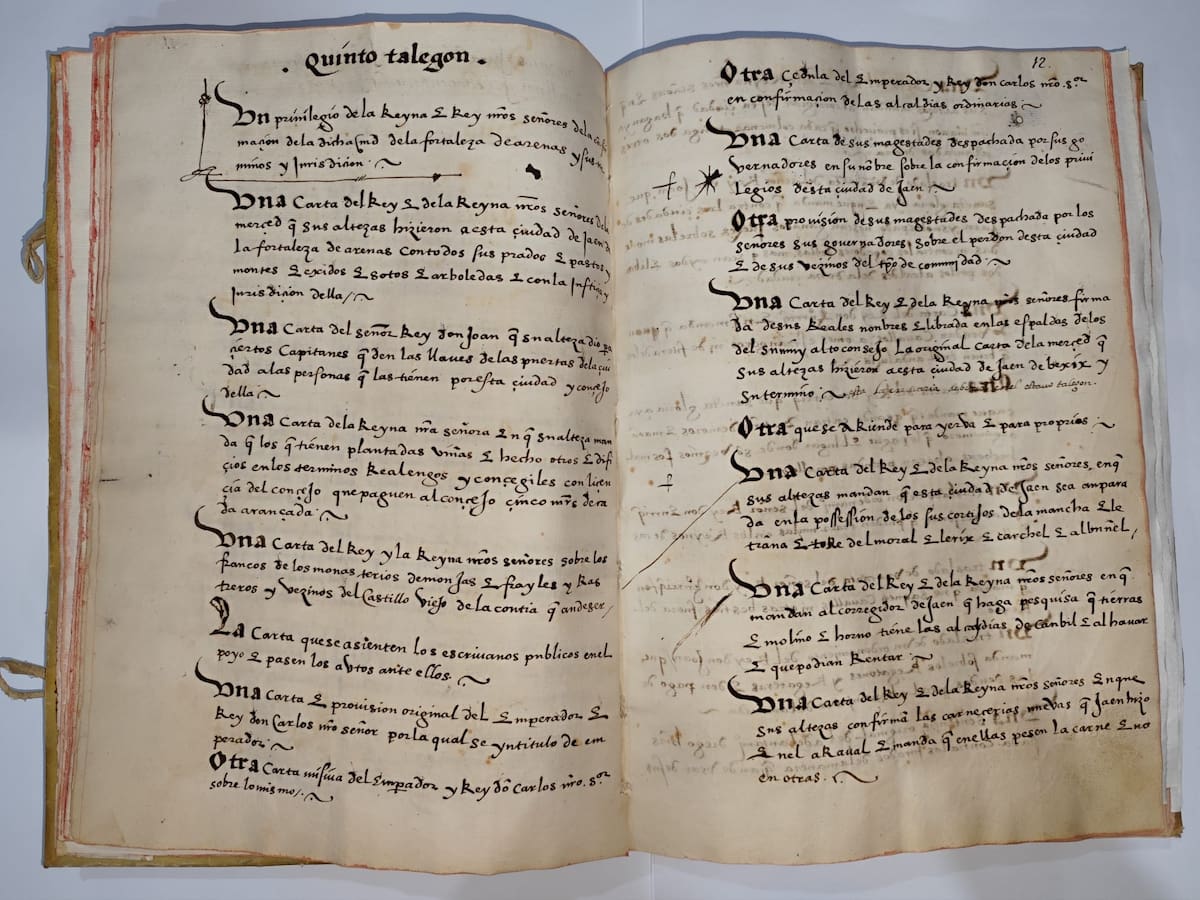 . Quinto talegon .
Vn priuilegio de la Reyna E Rey nr̃os señores de la
macion de la dicha de la fortaleza de arenas y sus
minos y Jurisdicion
Vna Carta del Rey E de la Reyna nr̃os señores de
merçed q̃ sus altezas hizieron a esta çiudad de Jaen
la fortaleza de arenas con todos sus prados E pastos
montes E exidos E sotos E arboledas E con la Justiçia y
Jurisdicion della /
Vna Carta del señor Rey don Joan q̃ su alteza dio
çiertos Capitanes q̃ den las llaves de las puertas de la çiu
dad a las personas q̃ las tienen por esta çiudad y conçejo
della
Vna Carta de la Reyna nr̃a señora En q̃ su alteza man
da q̃ los q̃ tienen plantadas viñas E hecho otros Edifi
çios en los terminos Realengos y conçegiles con liçen
çia del conçejo que paguen al conçejo çinco mr̃s de ca
da arançada
Vna Carta del Rey y la Reyna nr̃os señores sobre los
francos de los monasterios de monjas E frayles y Ras
treros y vezinos del Castillo viejo de la contia q̃ an de ser /
La Carta que se asienten los escriuanos publicos en el
poyo E pasen los autos ante ellos.
Vna Carta E provision original del Emperador E
Rey don Carlos nr̃o señor por la qual se yntitulo de em
perador
Otra Carta misiva del Emperador y Rey dõ Carlos nr̃o. s.or
sobre lo mismo /.
12.
Otra Çedula del Emperador y Rey don Carlos nr̃o. s.or
en confirmacion de las alcaldias ordinarias
Vna Carta de sus magestades despachada por sus go
vernadores en su nõbre sobre la confirmacion de los priui
Legios desta çiudad de Jaen
Otra provision de sus magestades despachada por los
señores sus governadores sobre el perdon desta çiudad
E de sus vezinos del tp̃o de comunidad
Vna Carta del Rey E de la Reyna nr̃os señores firma
da de sus Reales nonbres E librada en las espaldas de los
del su muy alto consejo La original Carta de la merçed q̃
sus altezas hizieron a esta çiudad de Jaen de bexix y
su termino octauo talegon.
Otra que se aRiende para yerva E para proprios
Vna Carta del Rey E de la Reyna nr̃os señores, en q̃
sus altezas mandan q̃ esta çiudad de Jaen sea ampara
da en la possession de los sus cortijos de la mancha E le
trãna E toRe del moral E lerix E tarchel E albuñel,
Vna Carta del Rey E de la Reyna nr̃os señores en q̃
mandan al corregidor de Jaen q̃ haga pesquisa q̃ tierras
E molino E horno tiene las alcaydias de canbil E alhavar
E que podian Rentar
Vna Carta del Rey E de la Reyna nr̃os señores En que
sus altezas confirmã las carneçerias nuevas q̃ Jaen hizo
En el aRaval E manda q̃ en ellas pesen la carne E no
en otras.